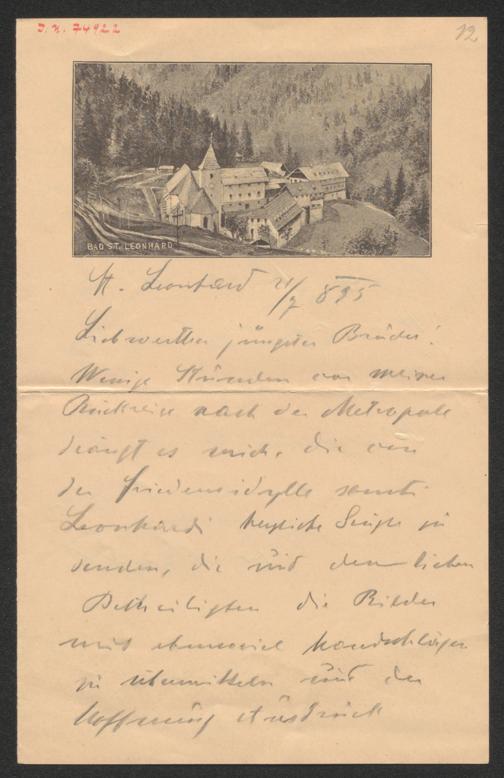 I.N. 74922
12
BAD ST. LEONHARD
St. Leonhard 21/7 895
Liebwerther jüngster Bruder!
Wenige Stunden vor meiner
Rückreise nach der Metropole
drängt es mich, dir von
der Friedensidylle sancti
Leonhardi herzliche Grüße zu
senden, die mit den lieben
Betheiligten die Bilder
mit ebensoviel Handschlägen
zu übermitteln und der
Hoffnung Ausdruck